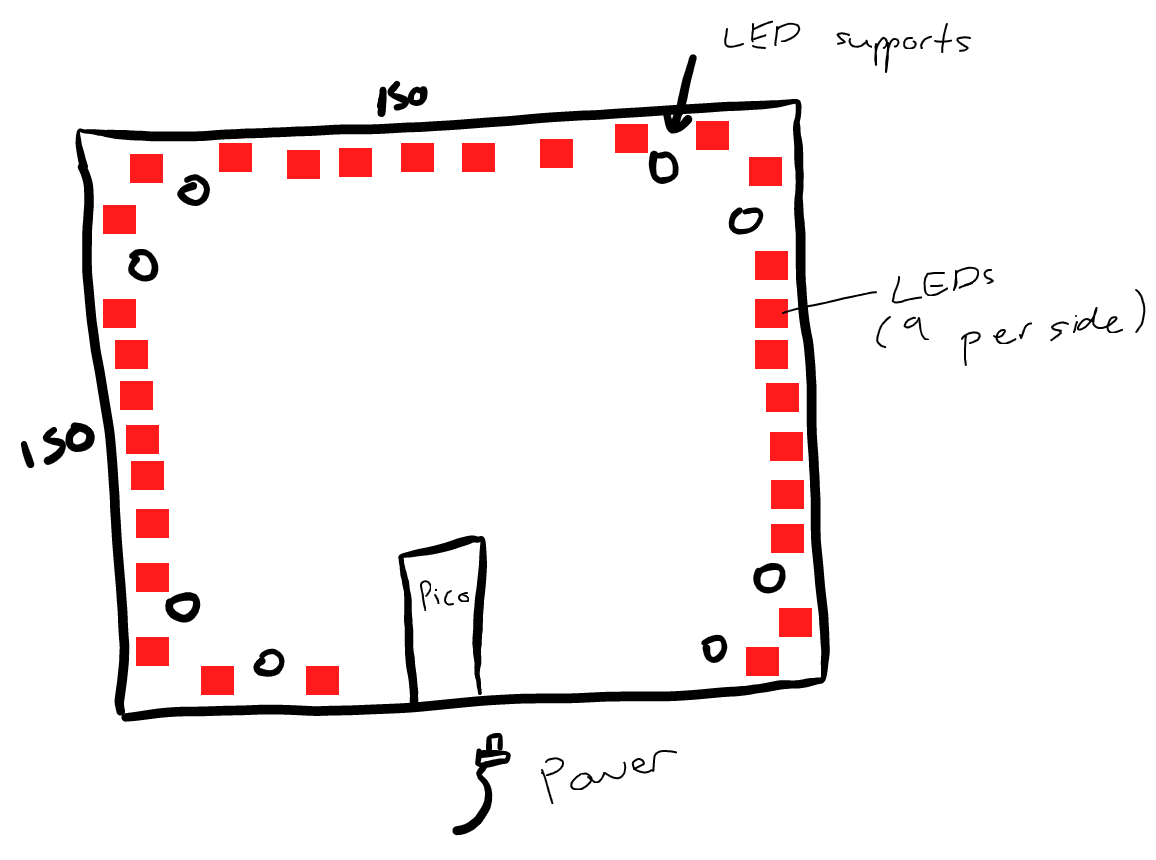 LED supports
150
LEDs
(9 per side)
150
Pico
Power